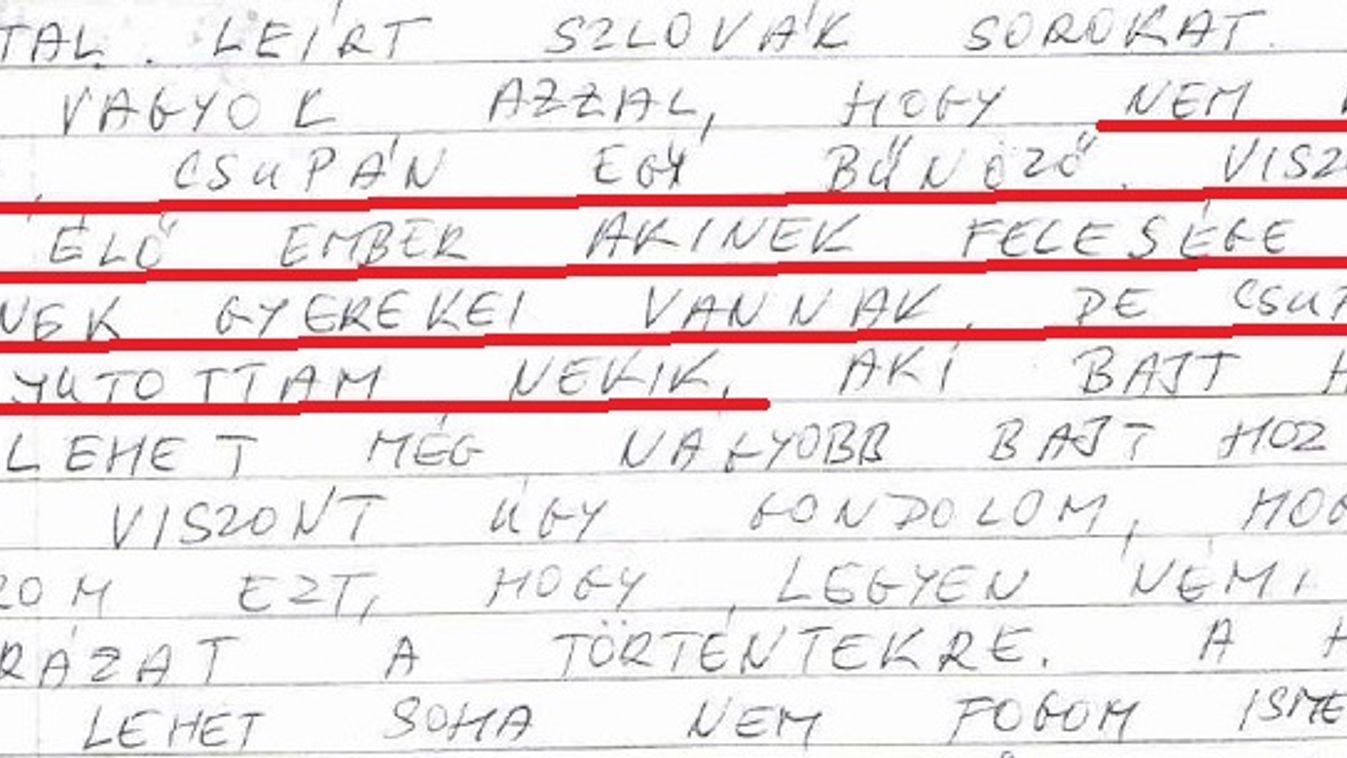 TAL. LEÍRT SZLOVÁK SOROKAT.
VAGYOK AZZAL, HOGY NEM
, CSUPÁN EGY BŰNÖZŐ. VISZ
ÉLŐ EMBER AKINEK FELESÉGE
NEK GYEREKEI VANNAK, DE CSUP
YUTOTTAM NEKIK, AKI BAJT H
LEHET MÉG NAGYOBB BAJT HOZ
VISZONT ÚGY GONDOLOM, HOG
ZOM EZT, HOGY LEGYEN NÉMI
RÁZAT A TÖRTÉNTEKRE. A H
LEHET SOHA NEM FOGOM ISME